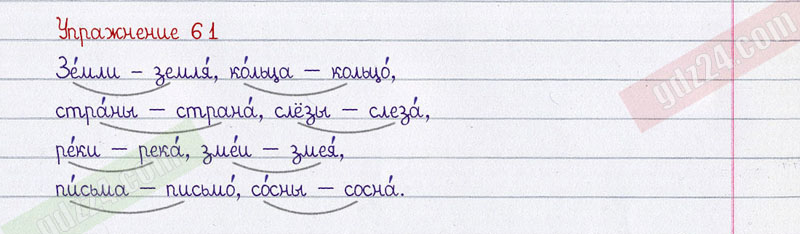 Упражнение 61
Зе́мли – земля́, ко́льца – кольцо́,
стра́ны – страна́, слёзы – слеза́,
ре́ки – река́, зме́и – змея́,
пи́сьма – письмо́, со́сны – сосна́.
gdz24.com